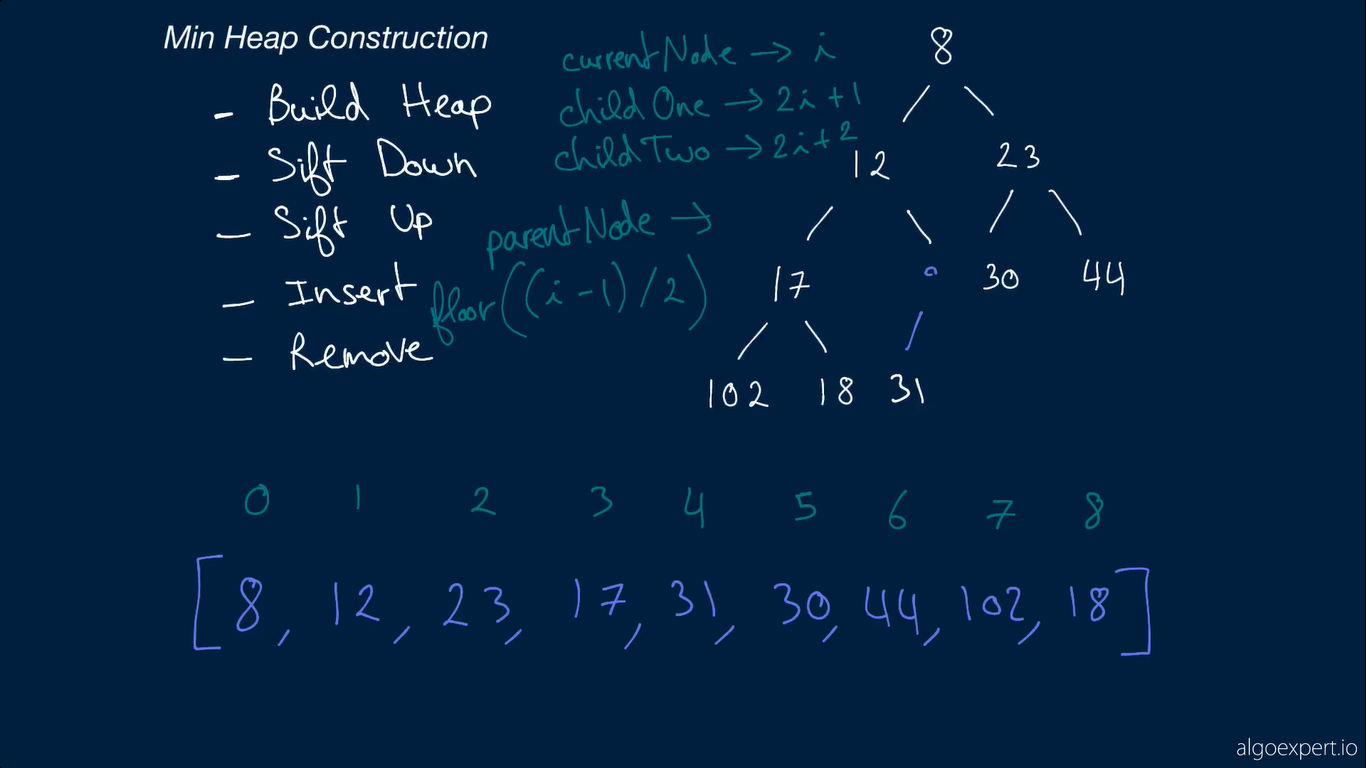 Min Heap Construction
- Build Heap
- Sift Down
- Sift Up
- Insert
- Remove
currentNode → i
childOne → 2i+1
childTwo → 2i+2
parentNode →
floor((i-1)/2)
8
12 23
17 30 44
102 18 31
0 1 2 3 4 5 6 7 8
[8, 12, 23, 17, 31, 30, 44, 102, 18]
algoexpert.io